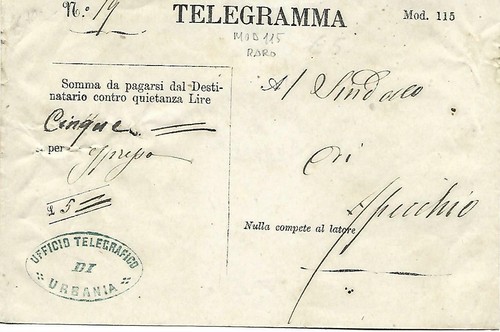 N.° 19
TELEGRAMMA
Mod. 115
MOD 115
RARO
Somma da pagarsi dal Desti-
natario contro quietanza Lire
Cinque
per espresso
£ 5
Al Sindaco
di
Apecchio
Nulla compete al latore
UFFICIO TELEGRAFICO
DI
URBANIA